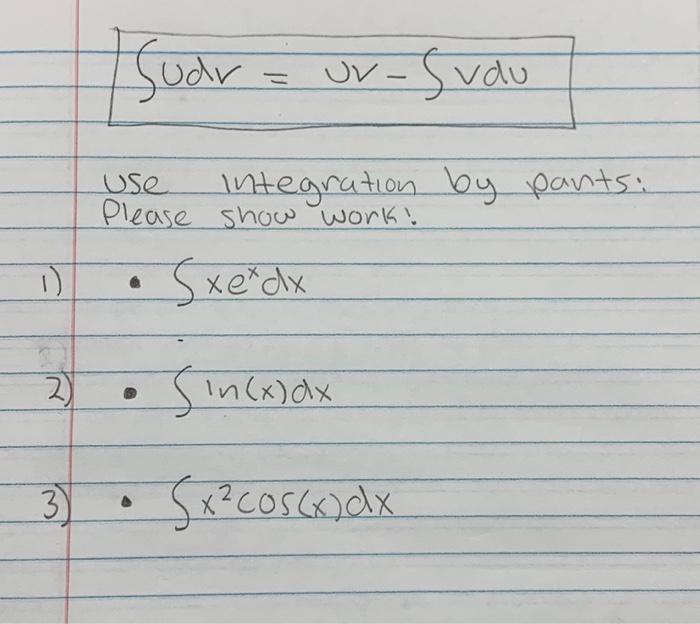 ∫udv = uv - ∫vdu
Use integration by parts:
Please show work!
1) • ∫xeˣdx
2) • ∫ln(x)dx
3) • ∫x²cos(x)dx